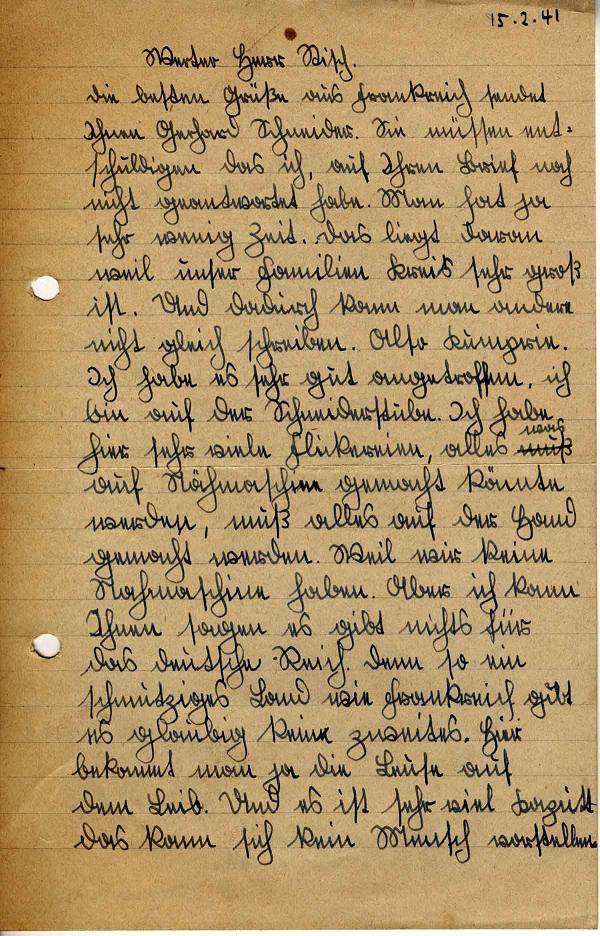 15.2.41
Werter Herr Risch.
die besten Grüße aus Frankreich sendet
Ihnen Gerhard Schneider. Sie müssen ent=
schuldigen das ich, auf Ihren Brief noch
nicht geantwortet habe. Man hat ja
sehr wenig Zeit. das liegt daran
weil unser Familien Kreis sehr groß
ist. Und dadurch kann man andere
nicht gleich schreiben. Also
Ich habe es sehr gut angetroffen, ich
bin auf der Schneiderstube. Ich habe
hier sehr viele Flickereien, alles was
auf Nähmaschine gemacht könnte
werden, muß alles auf der Hand
gemacht werden. Weil wir keine
Nahmaschine haben. Aber ich kann
Ihnen sagen es gibt nichts für
das deutsche Reich. denn so ein
schmutziges Land wie Frankreich gibt
es glaubig keine zweites. Hier
bekommt man ja die Leuse auf
dem Leib. Und es ist sehr viel kaputt
das kann sich kein Mensch vorstellen